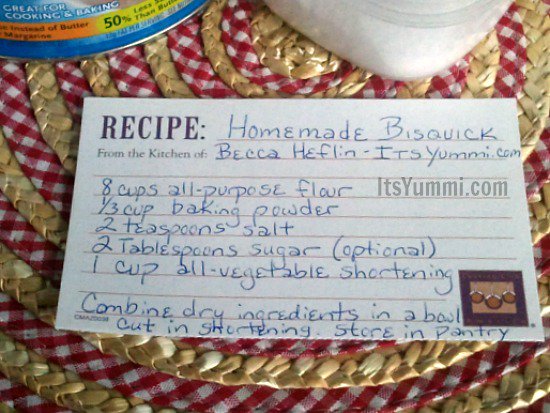 GREAT FOR
COOKING & BAKING
50% Less Sa
Than Butt
se Instead of Butter
Margarine
RECIPE: Homemade Bisquick
From the Kitchen of: Becca Heflin - ItsYummi.com
ItsYummi.com
8 cups all-purpose flour
1/3 cup baking powder
2 teaspoons salt
2 Tablespoons sugar (optional)
1 cup all-vegetable shortening
Combine dry ingredients in a bowl
Cut in shortening. Store in Pantry